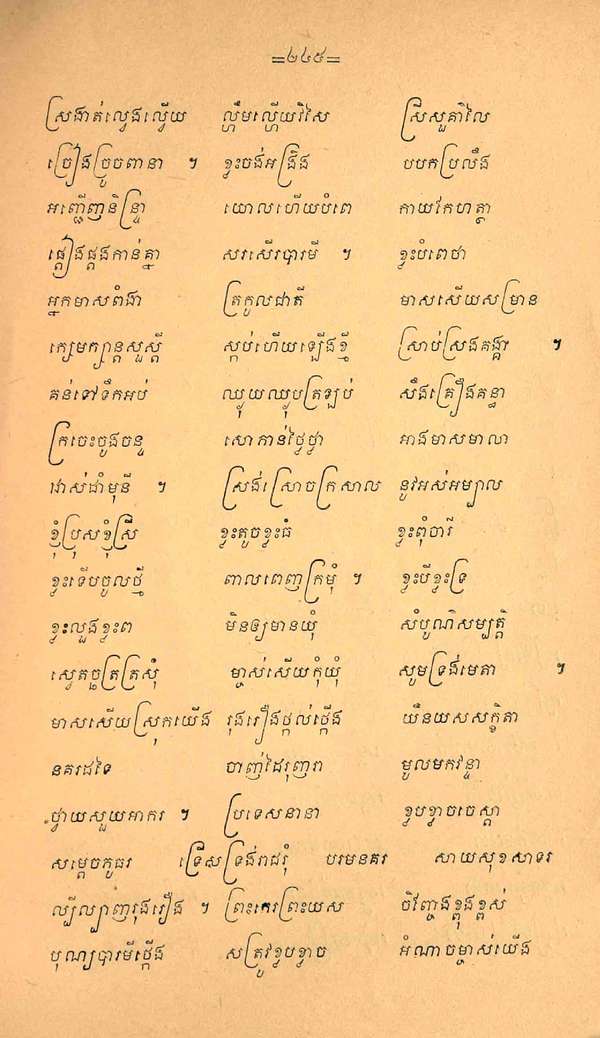 =២៤៥=
ស្រងាត់ល្វេងល្វើយ ល្ហឹមល្ហើយវិសៃ ស្រីសួគាល័ៃ
ច្រៀងច្រួចពានា ។ ខ្លះចង់អង្រ៊ឹង បបកប្រលឹង
អញ្ជើញនិន្ទ្រា យោលហើយបំពេ កាយវែកហត្ថា
ផ្គៀងផ្គងកាន់គ្នា សរសើរបារមី ។ ខ្លះបំពេថា
អ្នកមាសពំងា ត្រកូលជាតី មាសសើយសម្រាន
ក្សេមក្សាន្តសួស្តី ស្កប់ហើយឡើងខ្មី ស្រាប់ស្រងគង្គា ។
គន់ទៅទឹកអប់ ឈ្ងុយឈ្ងុបត្រឡប់ សឹងគ្រឿងគន្ធា
ក្រចេះចូងចន្ទ សោកាន់ថ្ងៃថ្លា អាងមាសមាលា
វោស់ជាំមុនី ។ ស្រង់ស្រោចក្រសាល នូវអស់អម្បាល
ខ្ញុំប្រុសខ្ញុំស្រី ខ្លះតូចខ្លះធំ ខ្លះពុំចារី
ខ្លះទើបចូលថ្មី ពាលពេញក្រមុំ ។ ខ្លះបីខ្លះទ្រ
ខ្លះលួងខ្លះព មិនឲ្យមានយុំ សំបូណ៌សម្បត្តិ
ស្វេតច្ឆត្រត្រសុំ ម្ចាស់សើយកុំយុំ សូមទ្រង់មេតា ។
មាសសើយស្រុកយើង រុងរឿងថ្កល់ថ្កើង យិនយសសក្ខិតា
នគរដទៃ ចាញ់ដៃរុញរា មូលមកវន្ទា
ថ្វាយសួយអាករ ។ ប្រទេសនានា ខ្លបខ្លាចចេស្តា
សម្តេចភូធរ ទ្រើសទ្រង់រាជរុំ បរមនគរ សាយសុខសាទរ
ល្បីល្បាញរុងរឿង ។ ព្រះកេរព្រះយស ចិវិញ្ចាងខ្ពង់ខ្ពស់
បុណ្យបារមីថ្កើង សត្រូវខ្លបខ្លាច អំណាចម្ចាស់យើង